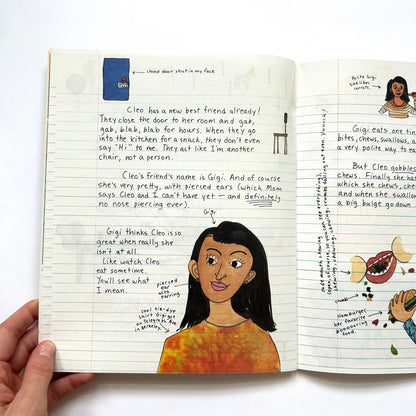 closed door shut in my face
Cleo has a new best friend already!
They close the door to her room and gab,
gab, blab, blab for hours. When they go
into the kitchen for a snack, they don't even
say "Hi" to me. They act like I'm another
chair, not a person.
Cleo's friend's name is Gigi. And of course
she's very pretty, with pierced ears (which Mom
says Cleo and I can't have yet — and definitely
no nose piercing ever).
Gigi
Gigi thinks Cleo is so
great when really she
isn't at all.
Like watch Cleo
eat sometime.
You'll see what
I mean.
pierced
ear
with
earring
cool tie-dye
shirt Gigi got
on Telegraph Ave.
in Berkeley
Polite Gigi
she likes
carrots.
Gigi eats one tin
bites, chews, swallow
a very polite way to ea
But Cleo gobbles
chews. Finally she has
which she chews, che
and when she swallow
a big bulge go down
crumbs
Hamburger,
her favorite
food